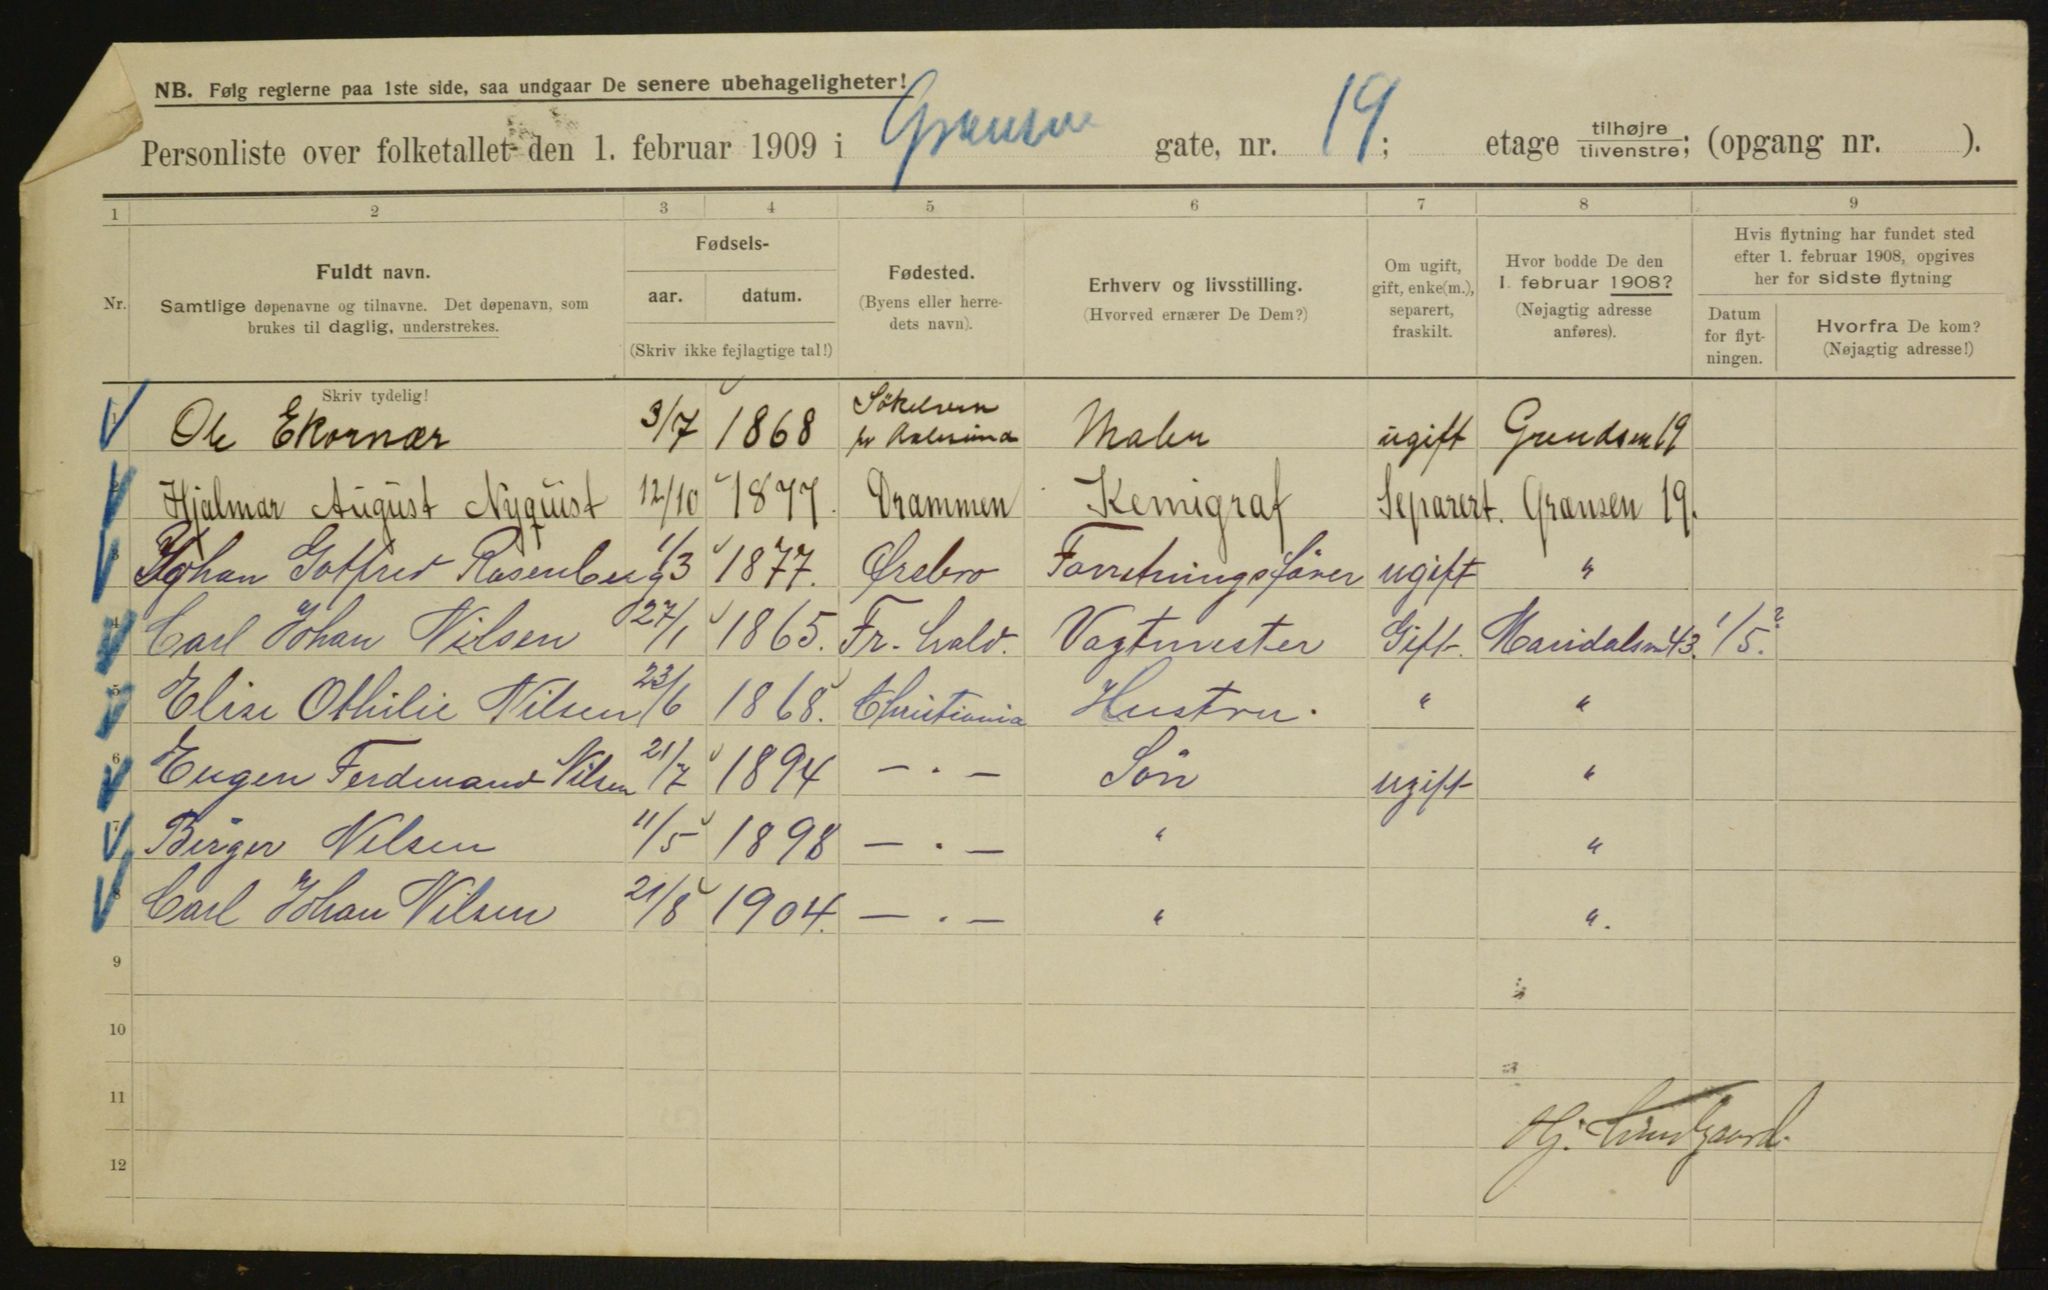 NB. Følg reglerne paa 1ste side, saa undgaar De senere ubehageligheter!
Personliste over folketallet den 1. februar 1909 i Grænsen gate, nr. 19; etage tilhøjre tilvenstre; (opgang nr. ).
1 2 3 4 5 6 7 8 9
Nr.
Fuldt navn.
Samtlige døpenavne og tilnavne. Det døpenavn, som
brukes til daglig, understrekes.
Fødsels-
aar. datum.
(Skriv ikke fejlagtige tal!)
Fødested.
(Byens eller herre-
dets navn).
Erhverv og livsstilling.
(Hvorved ernærer De Dem?)
Om ugift,
gift, enke(m.),
separert,
fraskilt.
Hvor bodde De den
1. februar 1908?
(Nøjagtig adresse
anføres).
Hvis flytning har fundet sted
efter 1. februar 1908, opgives
her for sidste flytning
Datum
for flyt-
ningen.
Hvorfra De kom?
(Nøjagtig adresse!)
Skriv tydelig!
1 Ole Ekornær 3/7 1868 Sökelven pr Aalesund Maler ugift 19
2 Hjalmar August Nyquist 12/10 1877. Drammen Kemigraf Separert. Grænsen 19.
3 Johan Gotfred Rosenberg 1/3 1877. Ørebro Forretningsfører ugift "
4 Carl Johan Nilsen 27/1 1865. Fr. hald. Vagtmester Gift. Maridalsv 43. 1/5.?
5 Elise Othilie Nilsen 23/6 1868. Christiania Hustru. " "
6 Eugen Ferdinand Nilsen 21/7 1894 — . — Sön ugift "
7 Birger Nilsen 11/5 1898 — . — " "
8 Carl Johan Nilsen 21/8 1904. — . — " ".
9
10
11
12
Hj. Lundgaard.